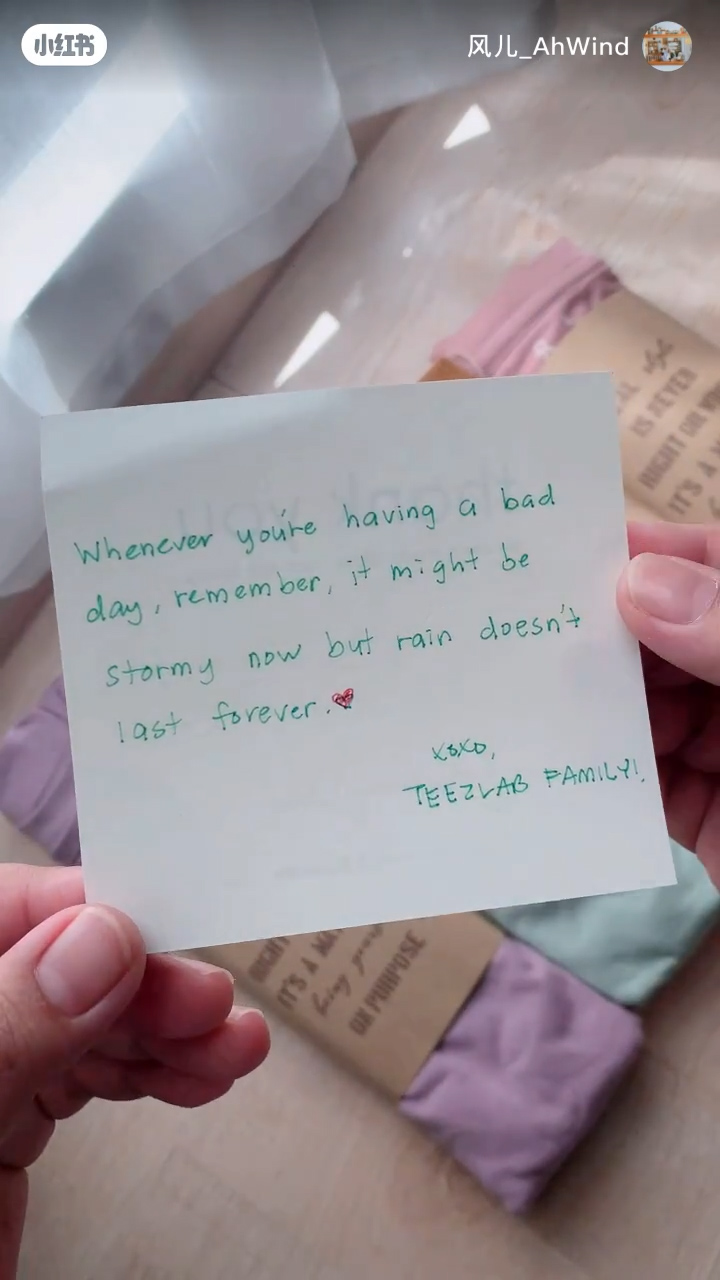 小红书
风儿_AhWind
Whenever you're having a bad
day, remember, it might be
stormy now but rain doesn't
last forever.
xoxo,
TEEZLAB FAMILY!
thank you
IS NEVER
RIGHT OR
IT'S A
RIGHT
IT'S A
being
ON PURPOSE